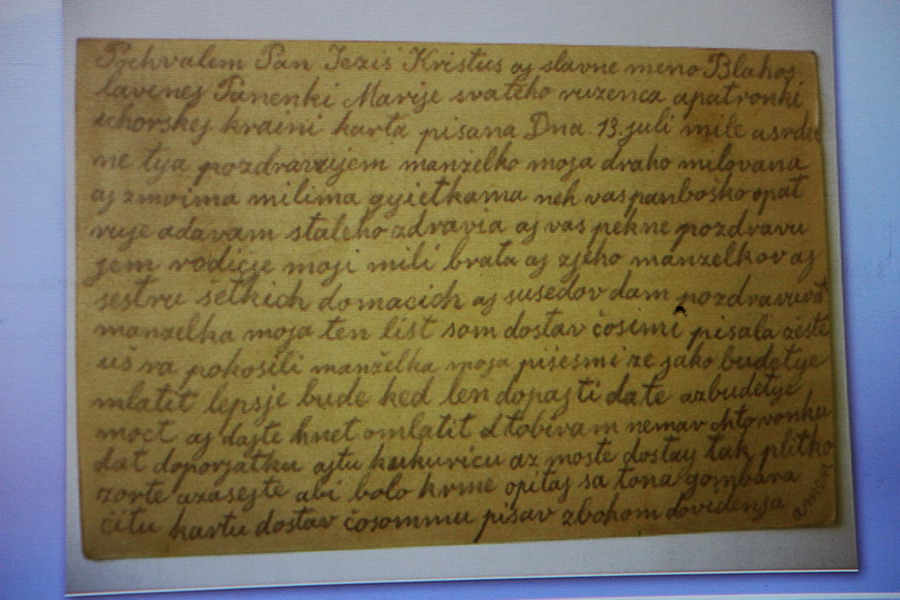 Pochvalem Pan Jeziś Kristus aj slavne meno Blahos
lavenej Panenki Marije svateho ruzenca apatronki
uhorskej kraini karta pisana Dna. 13. juli mile asrde
ne tya pozdravujem manzelko moja draho milovana
aj zmoima milima gyietkama neh vas panbosko opat
ruje adavam staleho zdravia aj vas pekne pozdravu
jem rodicje moji mili brata aj zjeho manzelkov aj
sestru setkich domacich aj susedov dam pozdravuvat
manzelka moja ten list som dostav čosimi pisala zeste
uš ra pokosili manželka moja pisesmi ze jako budetye
mlatit lepsje bude ked len dopajti date azbudetye
moct aj dajte hnet omlatit dtobi vam nemav chto vonku
dat doporjatku ajtu kukuricu az moste dostay tak plitko
zorte azasejte abi bolo krme opitaj sa tona gombara
čitu kartu dostav čosommu pisav zbohom dovidenja
amen